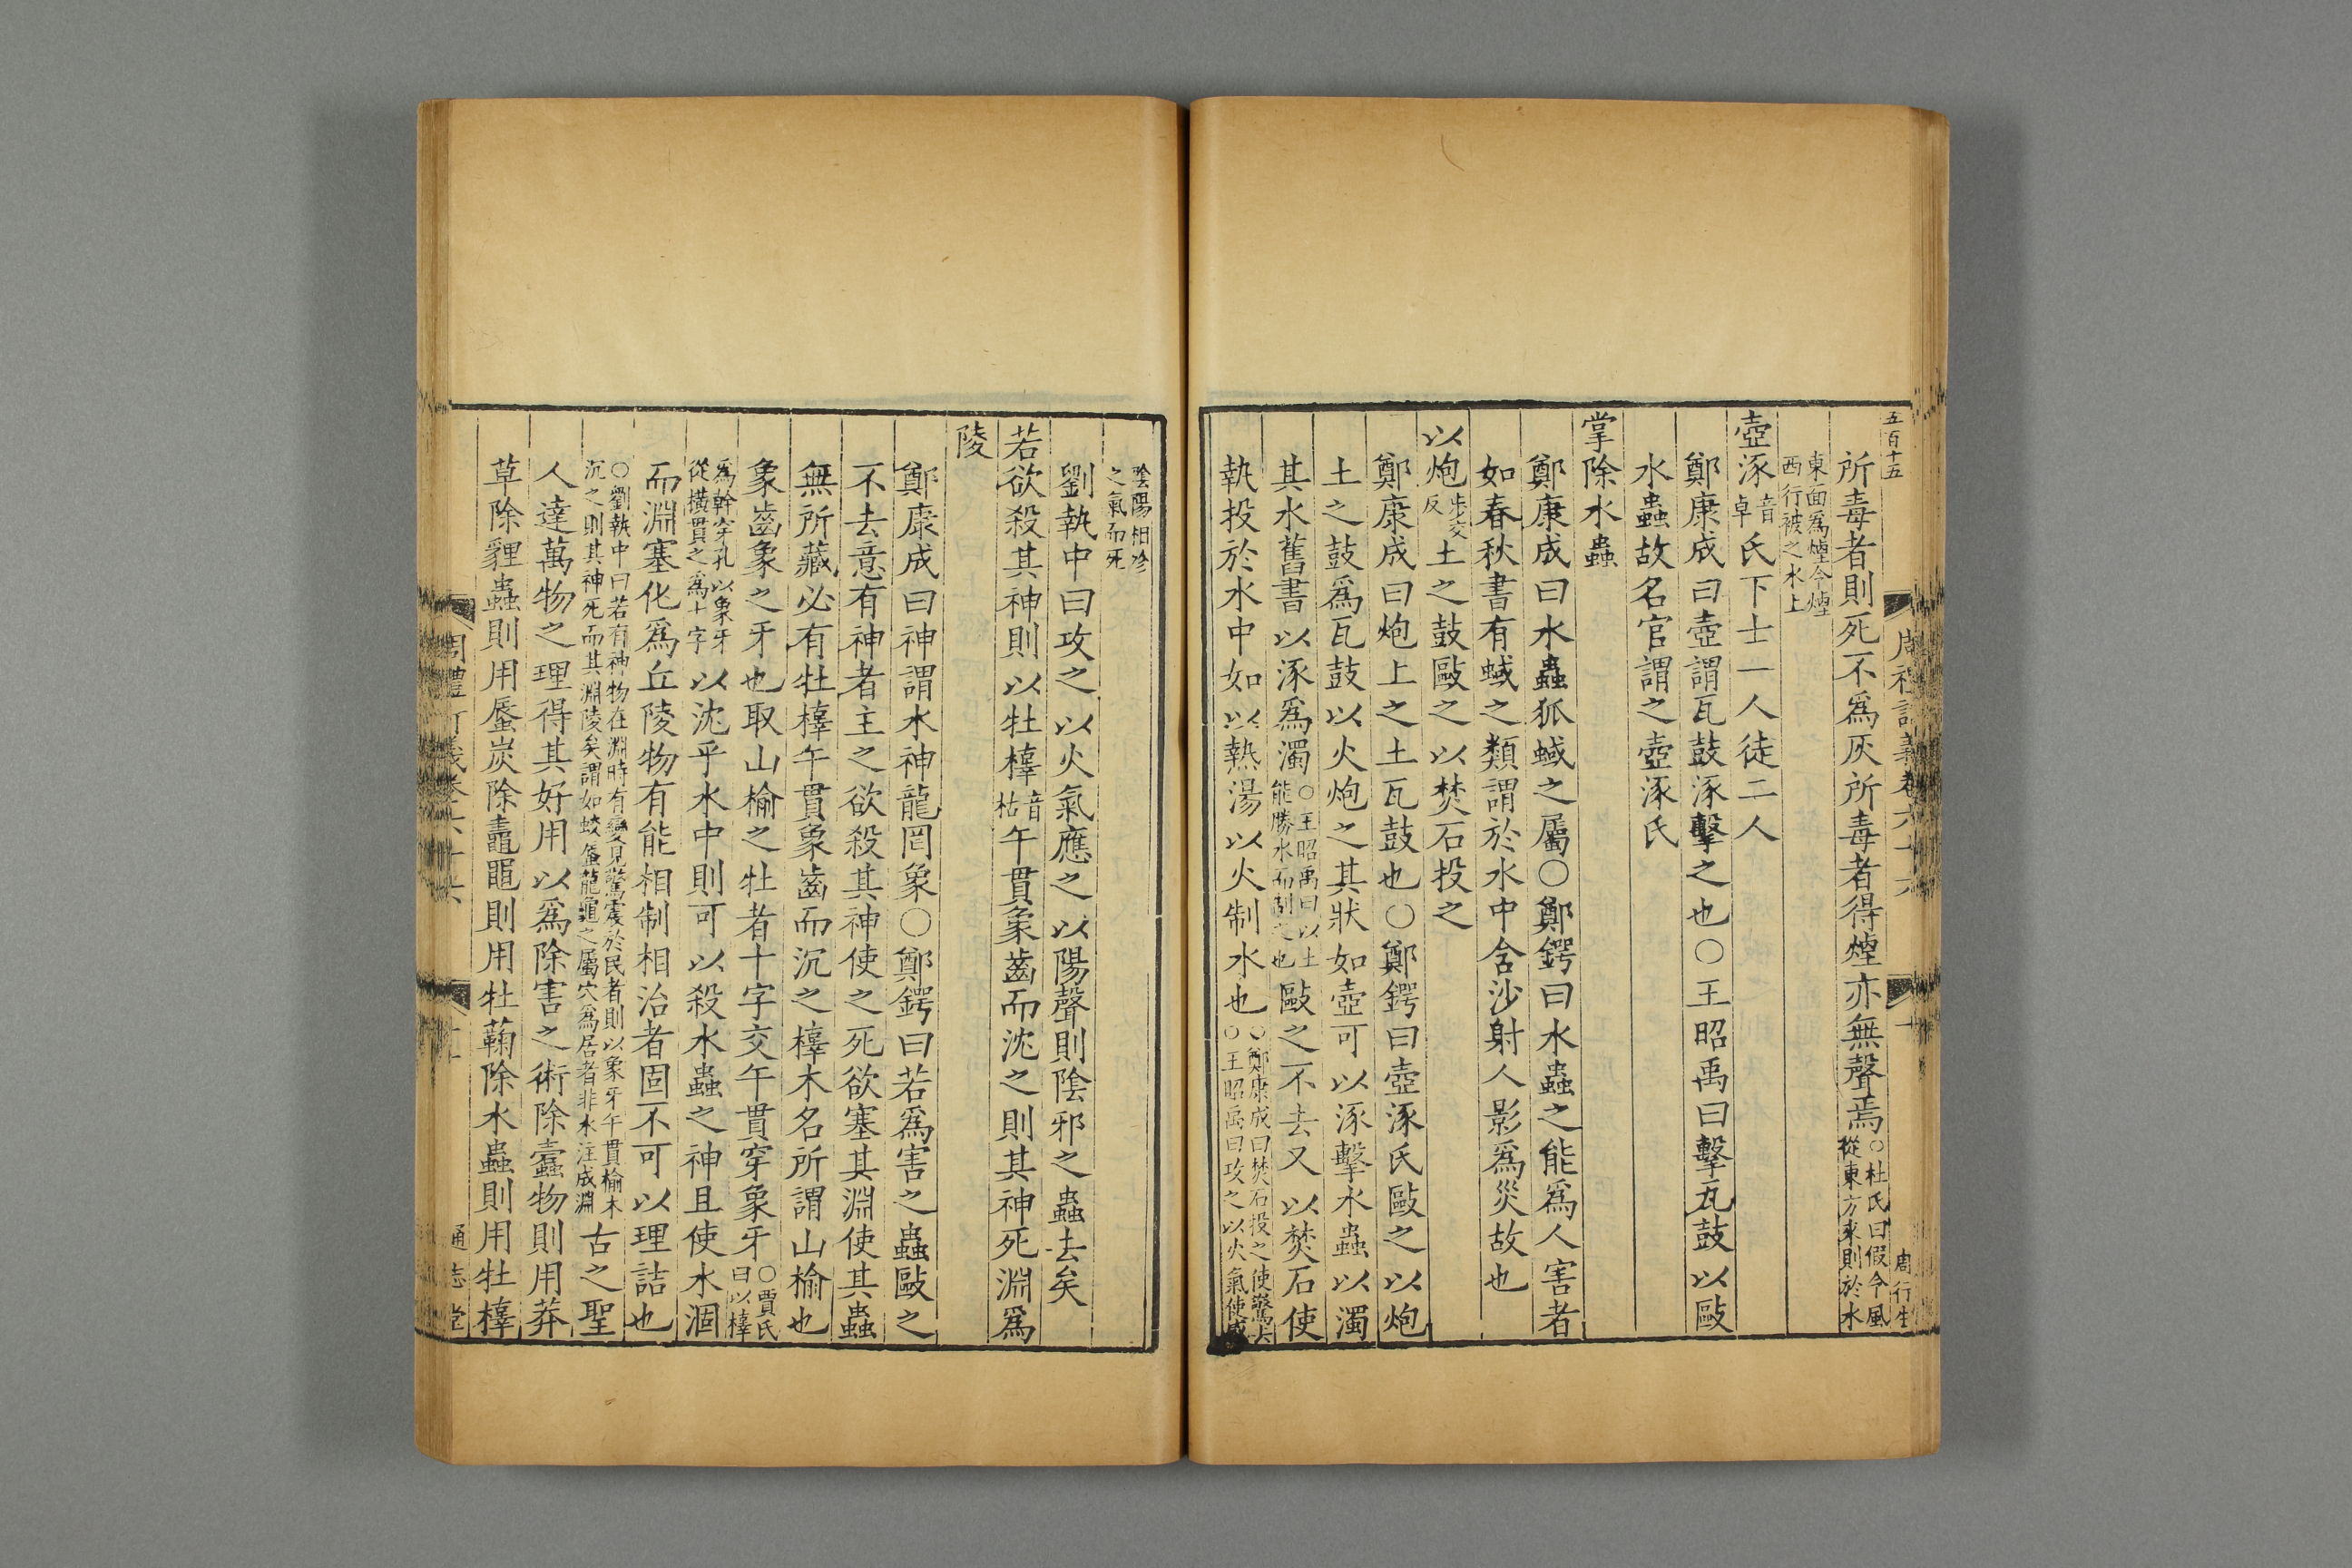 五百十五
周禮訂義卷六十六
十
周行生
所毒者則死不爲灰所毒者得煙亦無聲焉○杜氏曰假令風從東方來則於水
東面爲煙令煙西行被之水上
壺涿音卓氏下士一人徒二人
鄭康成曰壺謂瓦鼓涿擊之也○王昭禹曰擊瓦鼓以敺
水蟲故名官謂之壺涿氏
掌除水蟲
鄭康成曰水蟲狐蜮之屬○鄭鍔曰水蟲之能爲人害者
如春秋書有蜮之類謂於水中含沙射人影爲災故也
以炮步交反土之鼓敺之以焚石投之
鄭康成曰炮土之土瓦鼓也○鄭鍔曰壺涿氏敺之以炮
土之鼓爲瓦鼓以火炮之其狀如壺可以涿擊水蟲以濁
其水舊書以涿爲濁○王昭禹曰以土能勝水而制之也敺之不去又以焚石使
執投於水中如以熱湯以火制水也○鄭康成曰焚石投之使驚去○王昭禹曰攻之以火氣使感
陰陽相沴之氣而死
劉執中曰攻之以火氣應之以陽聲則陰邪之蟲去矣
若欲殺其神則以牡橭音枯午貫象齒而沈之則其神死淵爲
陵
鄭康成曰神謂水神龍罔象○鄭鍔曰若爲害之蟲敺之
不去意有神者主之欲殺其神使之死欲塞其淵使其蟲
無所藏必有牡橭午貫象齒而沉之橭木名所謂山榆也
象齒象之牙也取山榆之牡者十字交午貫穿象牙○賈氏曰以橭
爲幹穿孔以象牙從橫貫之爲十字以沈乎水中則可以殺水蟲之神且使水涸
而淵塞化爲丘陵物有能相制相治者固不可以理詰也
○劉執中曰若有神物在淵時有變見驚震於民者則以象牙午貫榆木沉之則其神死而其淵陵矣謂如蛟蜃龍龜之屬穴爲居者非水注成淵古之聖
人達萬物之理得其好用以爲除害之術除蠹物則用莽
草除貍蟲則用蜃炭除鼃黽則用牡蘜除水蟲則用牡橭
周禮訂義卷六十六
十
通志堂